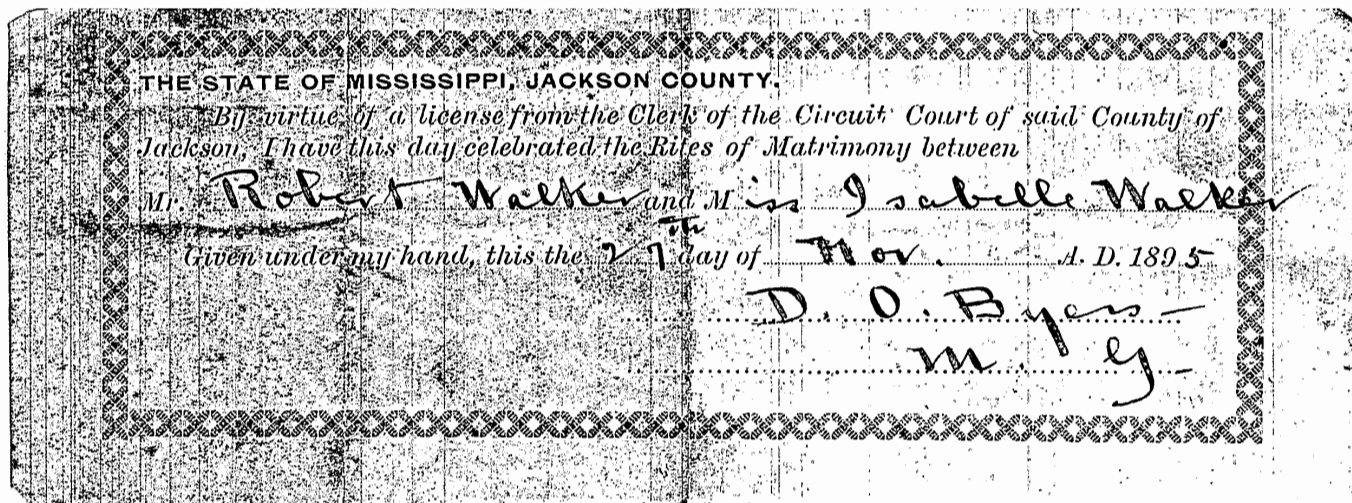 THE STATE OF MISSISSIPPI, JACKSON COUNTY.
By virtue of a license from the Clerk of the Circuit Court of said County of
Jackson, I have this day celebrated the Rites of Matrimony between
Mr. Robert Walker and Miss Isabelle Walker
Given under my hand, this the 27th day of Nov. A. D. 1895
D. O. Byers
M. G